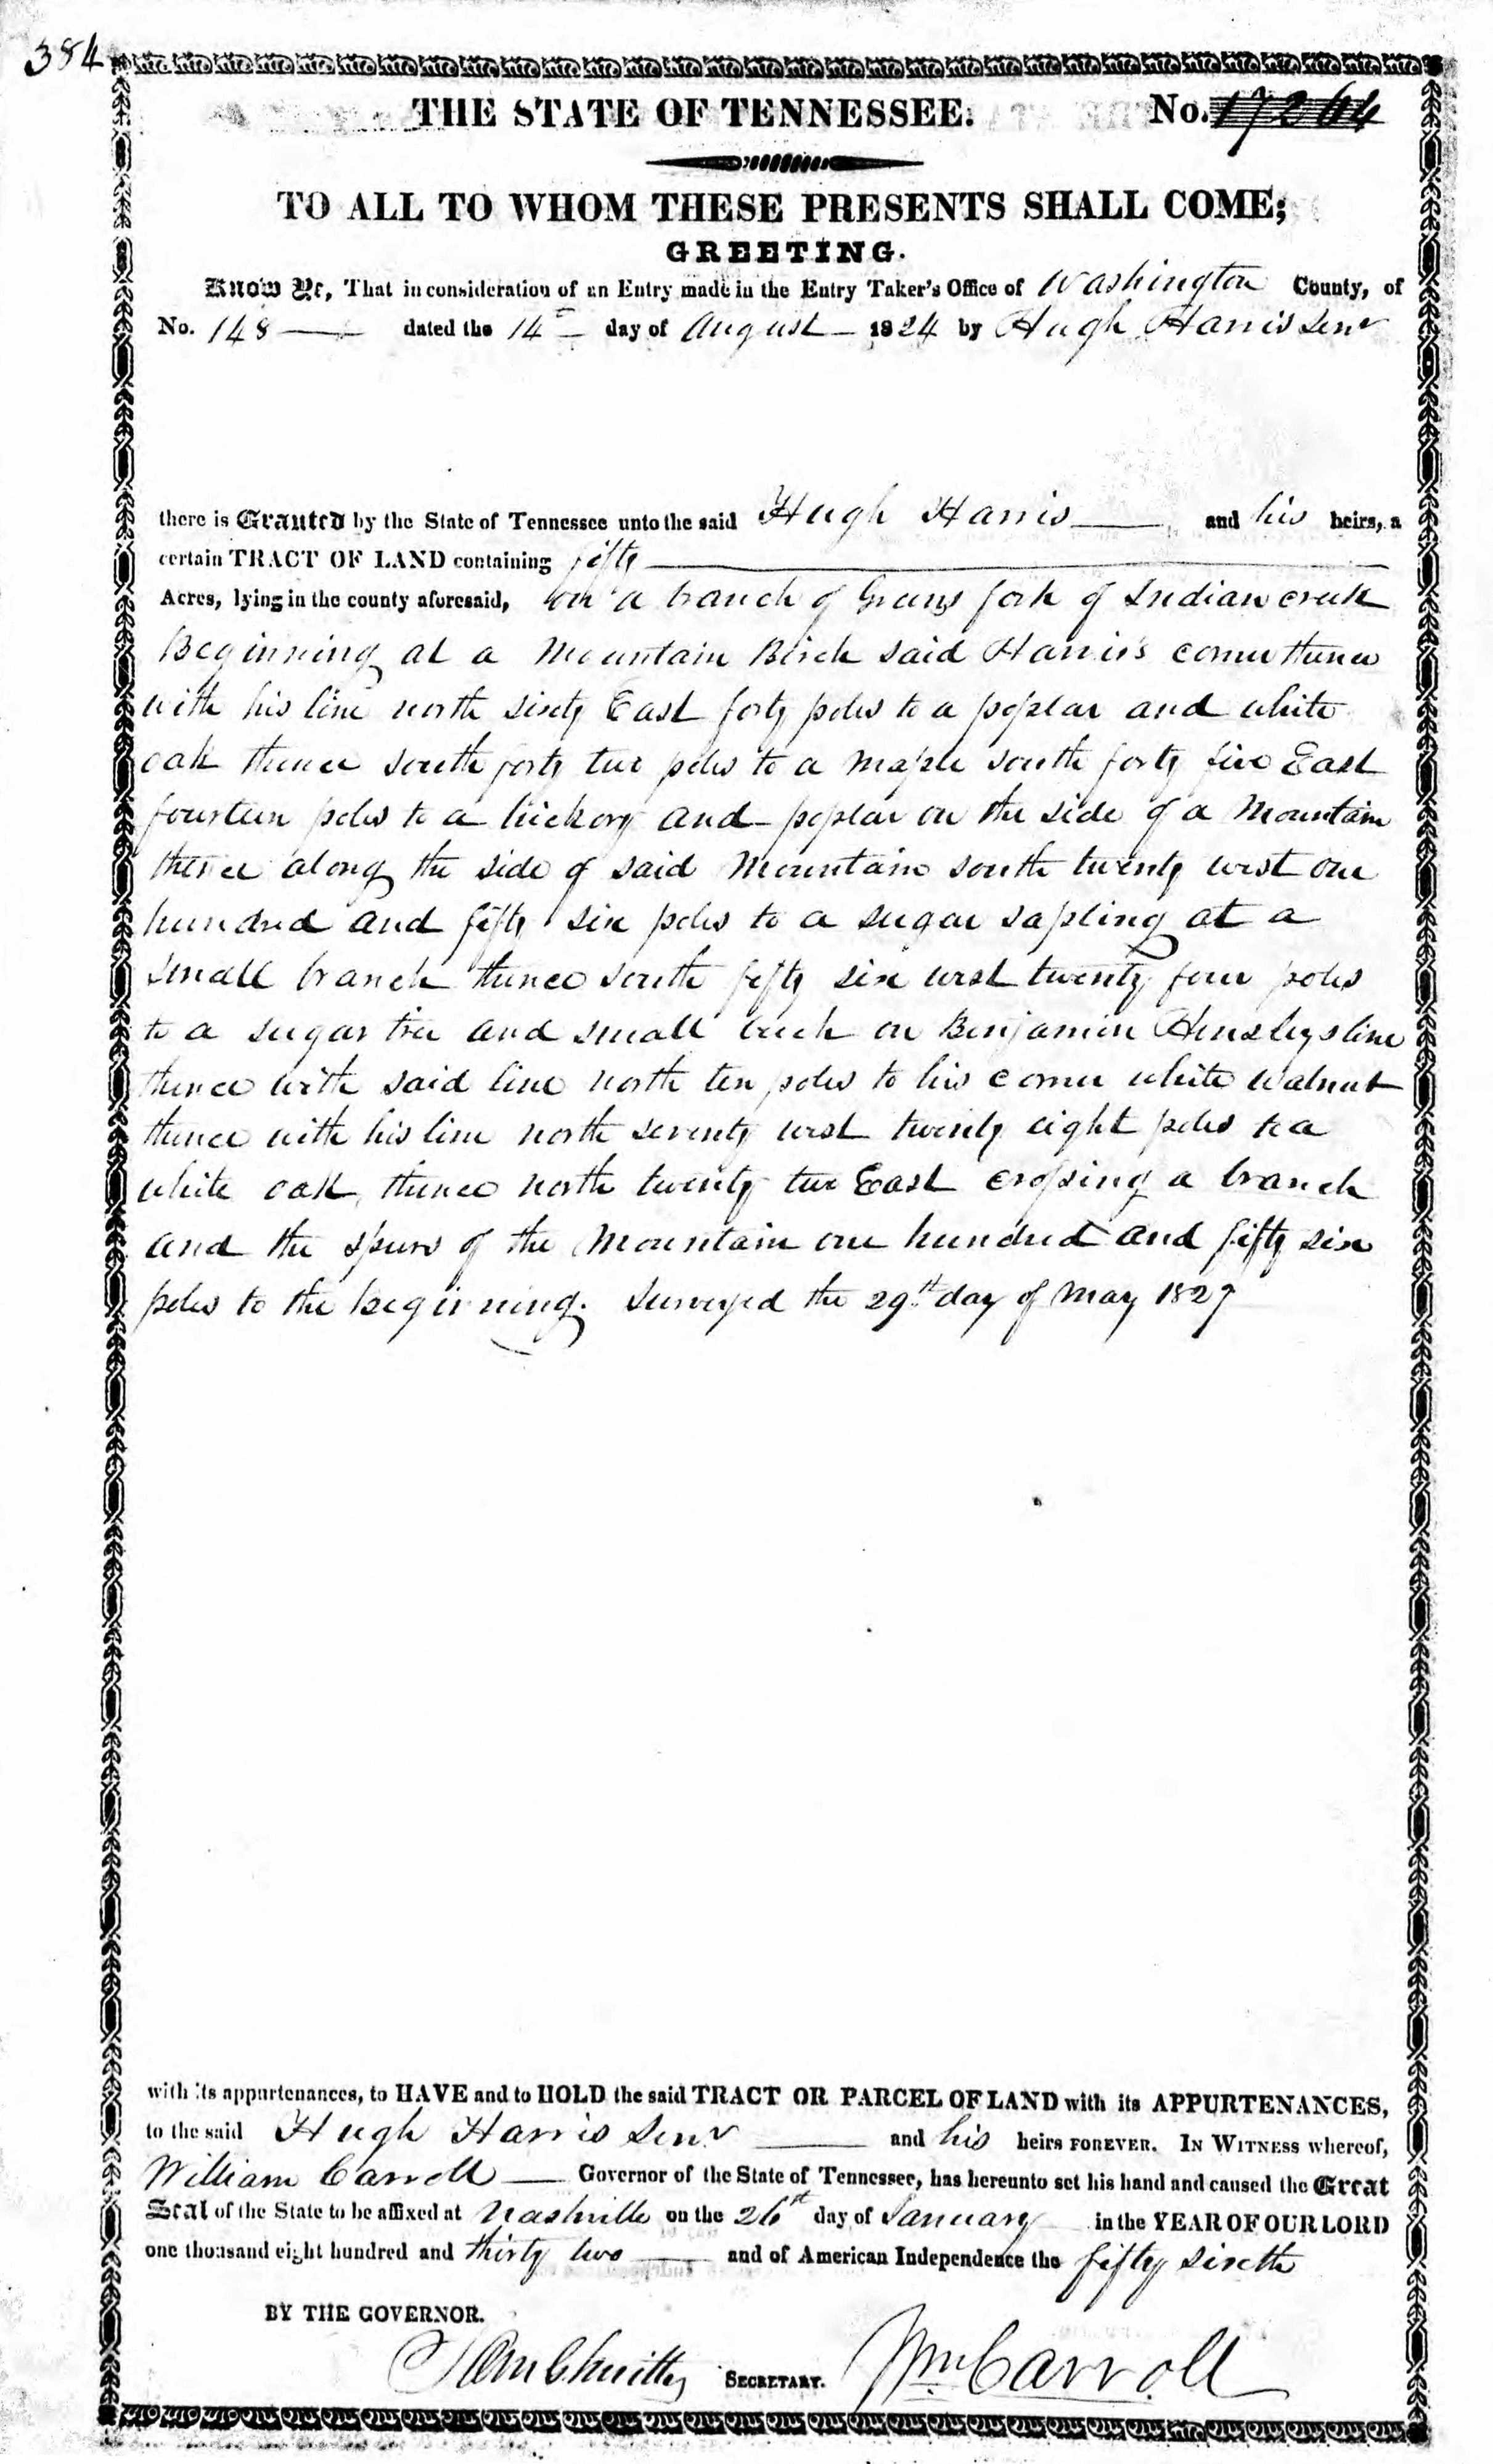 384
THE STATE OF TENNESSEE. No. 17264
TO ALL TO WHOM THESE PRESENTS SHALL COME;
GREETING.
Know Ye, That in consideration of an Entry made in the Entry Taker's Office of Washington County, of
No. 148 — dated the 14th day of August – 1824 by Hugh Harris Senr
there is Granted by the State of Tennessee unto the said Hugh Harris — and his heirs, a
certain TRACT OF LAND containing fifty —
Acres, lying in the county aforesaid, on a branch of Greens fork of Indian creek
Beginning at a Mountain Birch said Harris's corner thence
with his line north sixty East forty poles to a poplar and white
oak thence south forty two poles to a maple south forty five East
fourteen poles to a hickory and poplar on the side of a Mountain
thence along the side of said Mountain south twenty west one
hundred and fifty six poles to a sugar sapling at a
small branch thence south fifty six west twenty four poles
to a sugar tree and small on Benjamin Hensleys line
thence with said line north ten poles to his corner white walnut
thence with his line north seventy west twenty eight poles to a
white oak, thence north twenty two East crossing a branch
and the spurs of the Mountain one hundred and fifty six
poles to the beginning. Surveyed the 29th day of May 1829
with its appurtenances, to HAVE and to HOLD the said TRACT OR PARCEL OF LAND with its APPURTENANCES,
to the said Hugh Harris Senr — and his heirs FOREVER. IN WITNESS whereof,
William Carroll — Governor of the State of Tennessee, has hereunto set his hand and caused the Great
Seal of the State to be affixed at Nashville on the 26th day of January in the YEAR OF OUR LORD
one thousand eight hundred and thirty two — and of American Independence the fifty sixth
BY THE GOVERNOR.
Sam G Smith, SECRETARY. Wm Carroll